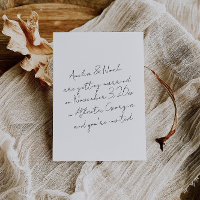 & Noah
are getting married
on November 3, 20
in Atlanta, Georgia
and you're invited